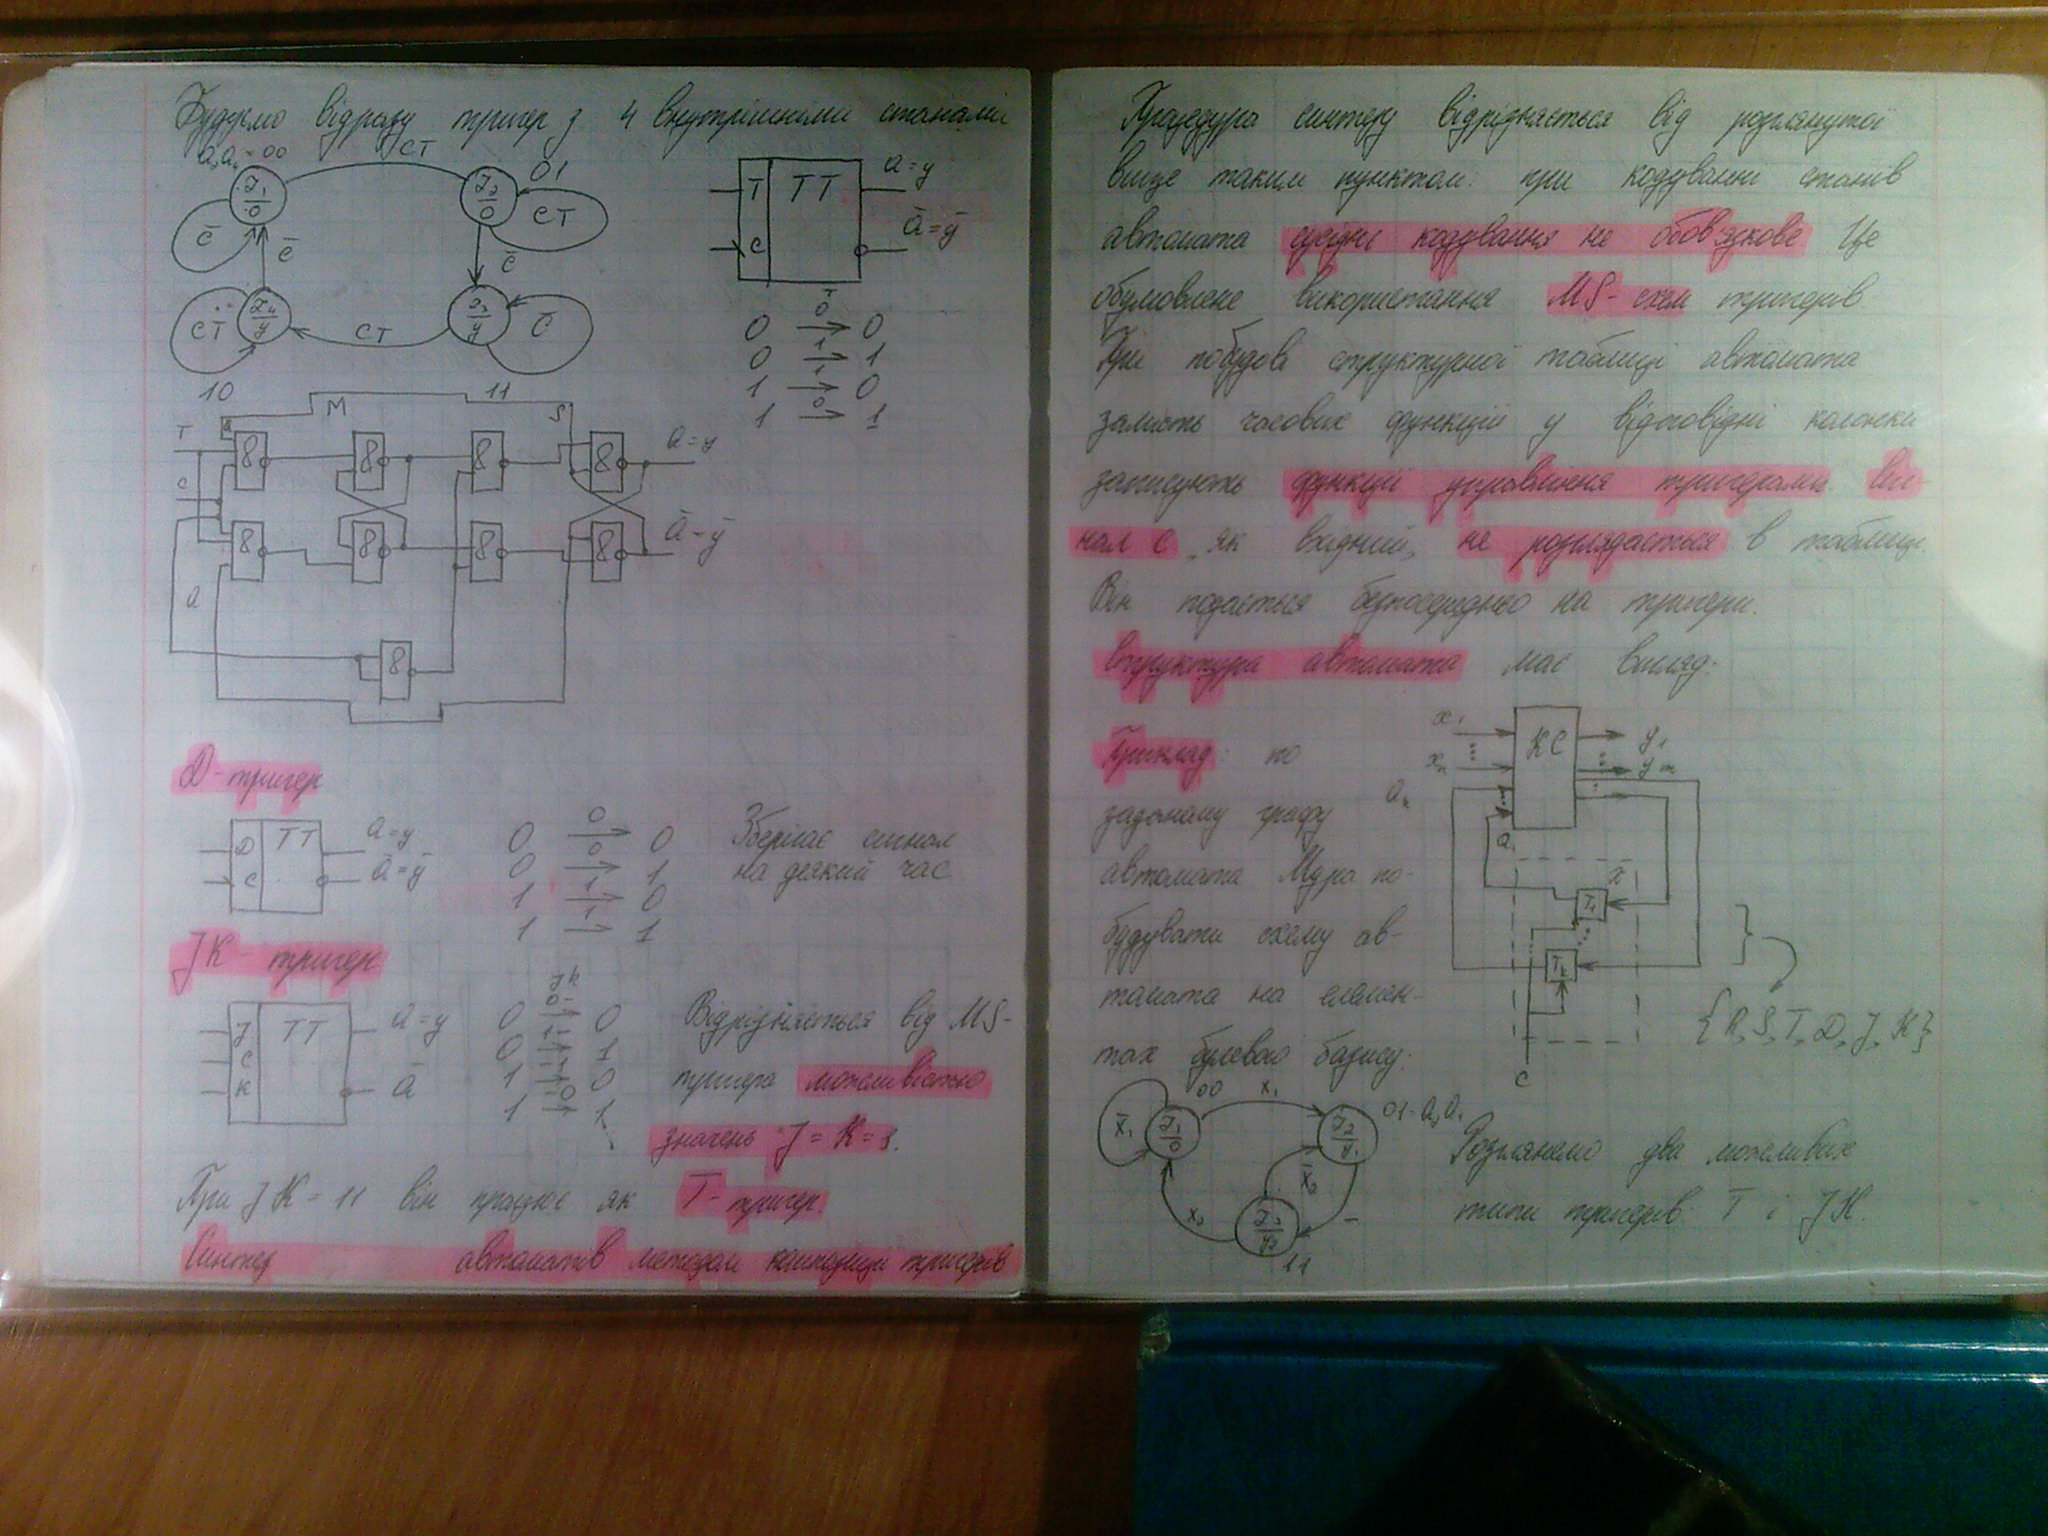 Будуємо відразу тригер з 4 внутрішніми станами
a₂a₁=00
CT
01
Z₁/0
Z₂/0
CT
C̄
C̄
C̄
Z₄/y
CT
Z₃/y
C̄
CT̄
10
11
T
C
TT
a=y
ā=ȳ
T
0 0→ 0
0 1→ 1
1 1→ 0
1 0→ 1
M
S
T
C
a
8
8
8
8
8
8
8
8
8
a=y
ā=ȳ
D-тригер
D
C
TT
a=y
ā=ȳ
0 0→ 0
0 0→ 1
1 1→ 0
1 1→ 1
Зберігає сигнал
на деякий час
JK-тригер
J
C
K
TT
a=y
ā
JK
0 0-→ 0
0 1-→ 1
1 -1→ 0
1 -0→ 1
Відрізняється від MS-
тригера можливістю
значень J=K=1.
При JK=11 він працює як T-тригер.
Синтез автоматів методом композиції тригерів
Процедура синтезу відрізняється від розглянутої
вище таким пунктом: при кодуванні станів
автомата сусіднє кодування не обов'язкове. Це
обумовлене використання MS-схем тригерів.
При побудові структурної таблиці автомата
замість часових функцій у відповідні колонки
записують функції управління тригерами. Сиг-
нал C, як вхідний, не розглядається в таблиці.
Він подається безпосередньо на тригери.
Структура автомата має вигляд:
x₁
xₙ
KC
y₁
yₘ
aₖ
a₁
T₁
Tₖ
C
{R, S, T, D, J, K}
Приклад: по
заданому графу
автомата Мура по-
будувати схему ав-
томата на елемен-
тах булевого базису:
00
x₁
01-a₂a₁
x̄₁
Z₁/0
Z₂/y₁
x̄₂
x₂
Z₃/y₂
–
11
Розглянемо два можливих
типи тригерів: T і JK.